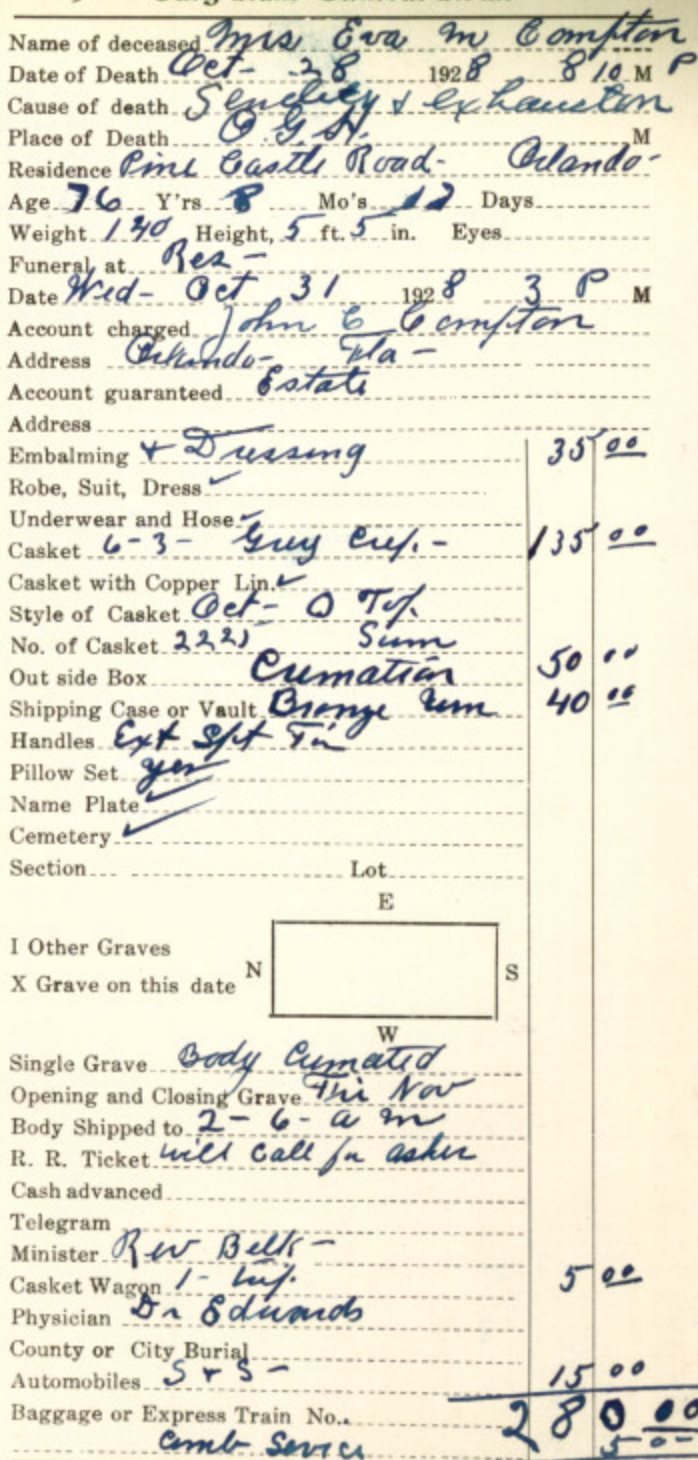 Name of deceased Mrs Eva M Compton
Date of Death Oct- 28 1928 8 10 M P
Cause of death & exhaustion
Place of Death O.G.H. M
Residence Pine Castle Road- Orlando-
Age 76 Y'rs 8 Mo's Days
Weight 140 Height, 5 ft. 5 in. Eyes
Funeral at Res-
Date Wed- Oct 31 1928 3 P M
Account charged John C Compton
Address Orlando- Fla-
Account guaranteed Estate
Address
Embalming & Dressing 35 00
Robe, Suit, Dress ✓
Underwear and Hose ✓
Casket 6-3- Grey Crep.- 135 00
Casket with Copper Lin. ✓
Style of Casket Oct- O Top.
No. of Casket
Out side Box Cremation 50 00
Shipping Case or Vault Bronze Urn 40 00
Handles Ext
Pillow Set yes
Name Plate ✓
Cemetery ✓
Section Lot
E
I Other Graves
X Grave on this date N S
W
Single Grave Body Cremated
Opening and Closing Grave Fri Nov
Body Shipped to 2- 6- a m
R. R. Ticket will call for ashes
Cash advanced
Telegram
Minister Rev Belk-
Casket Wagon 1- 5 00
Physician Dr Edwards
County or City Burial
Automobiles S & S- 15 00
Baggage or Express Train No.. 280 00
Amb Service 5 00